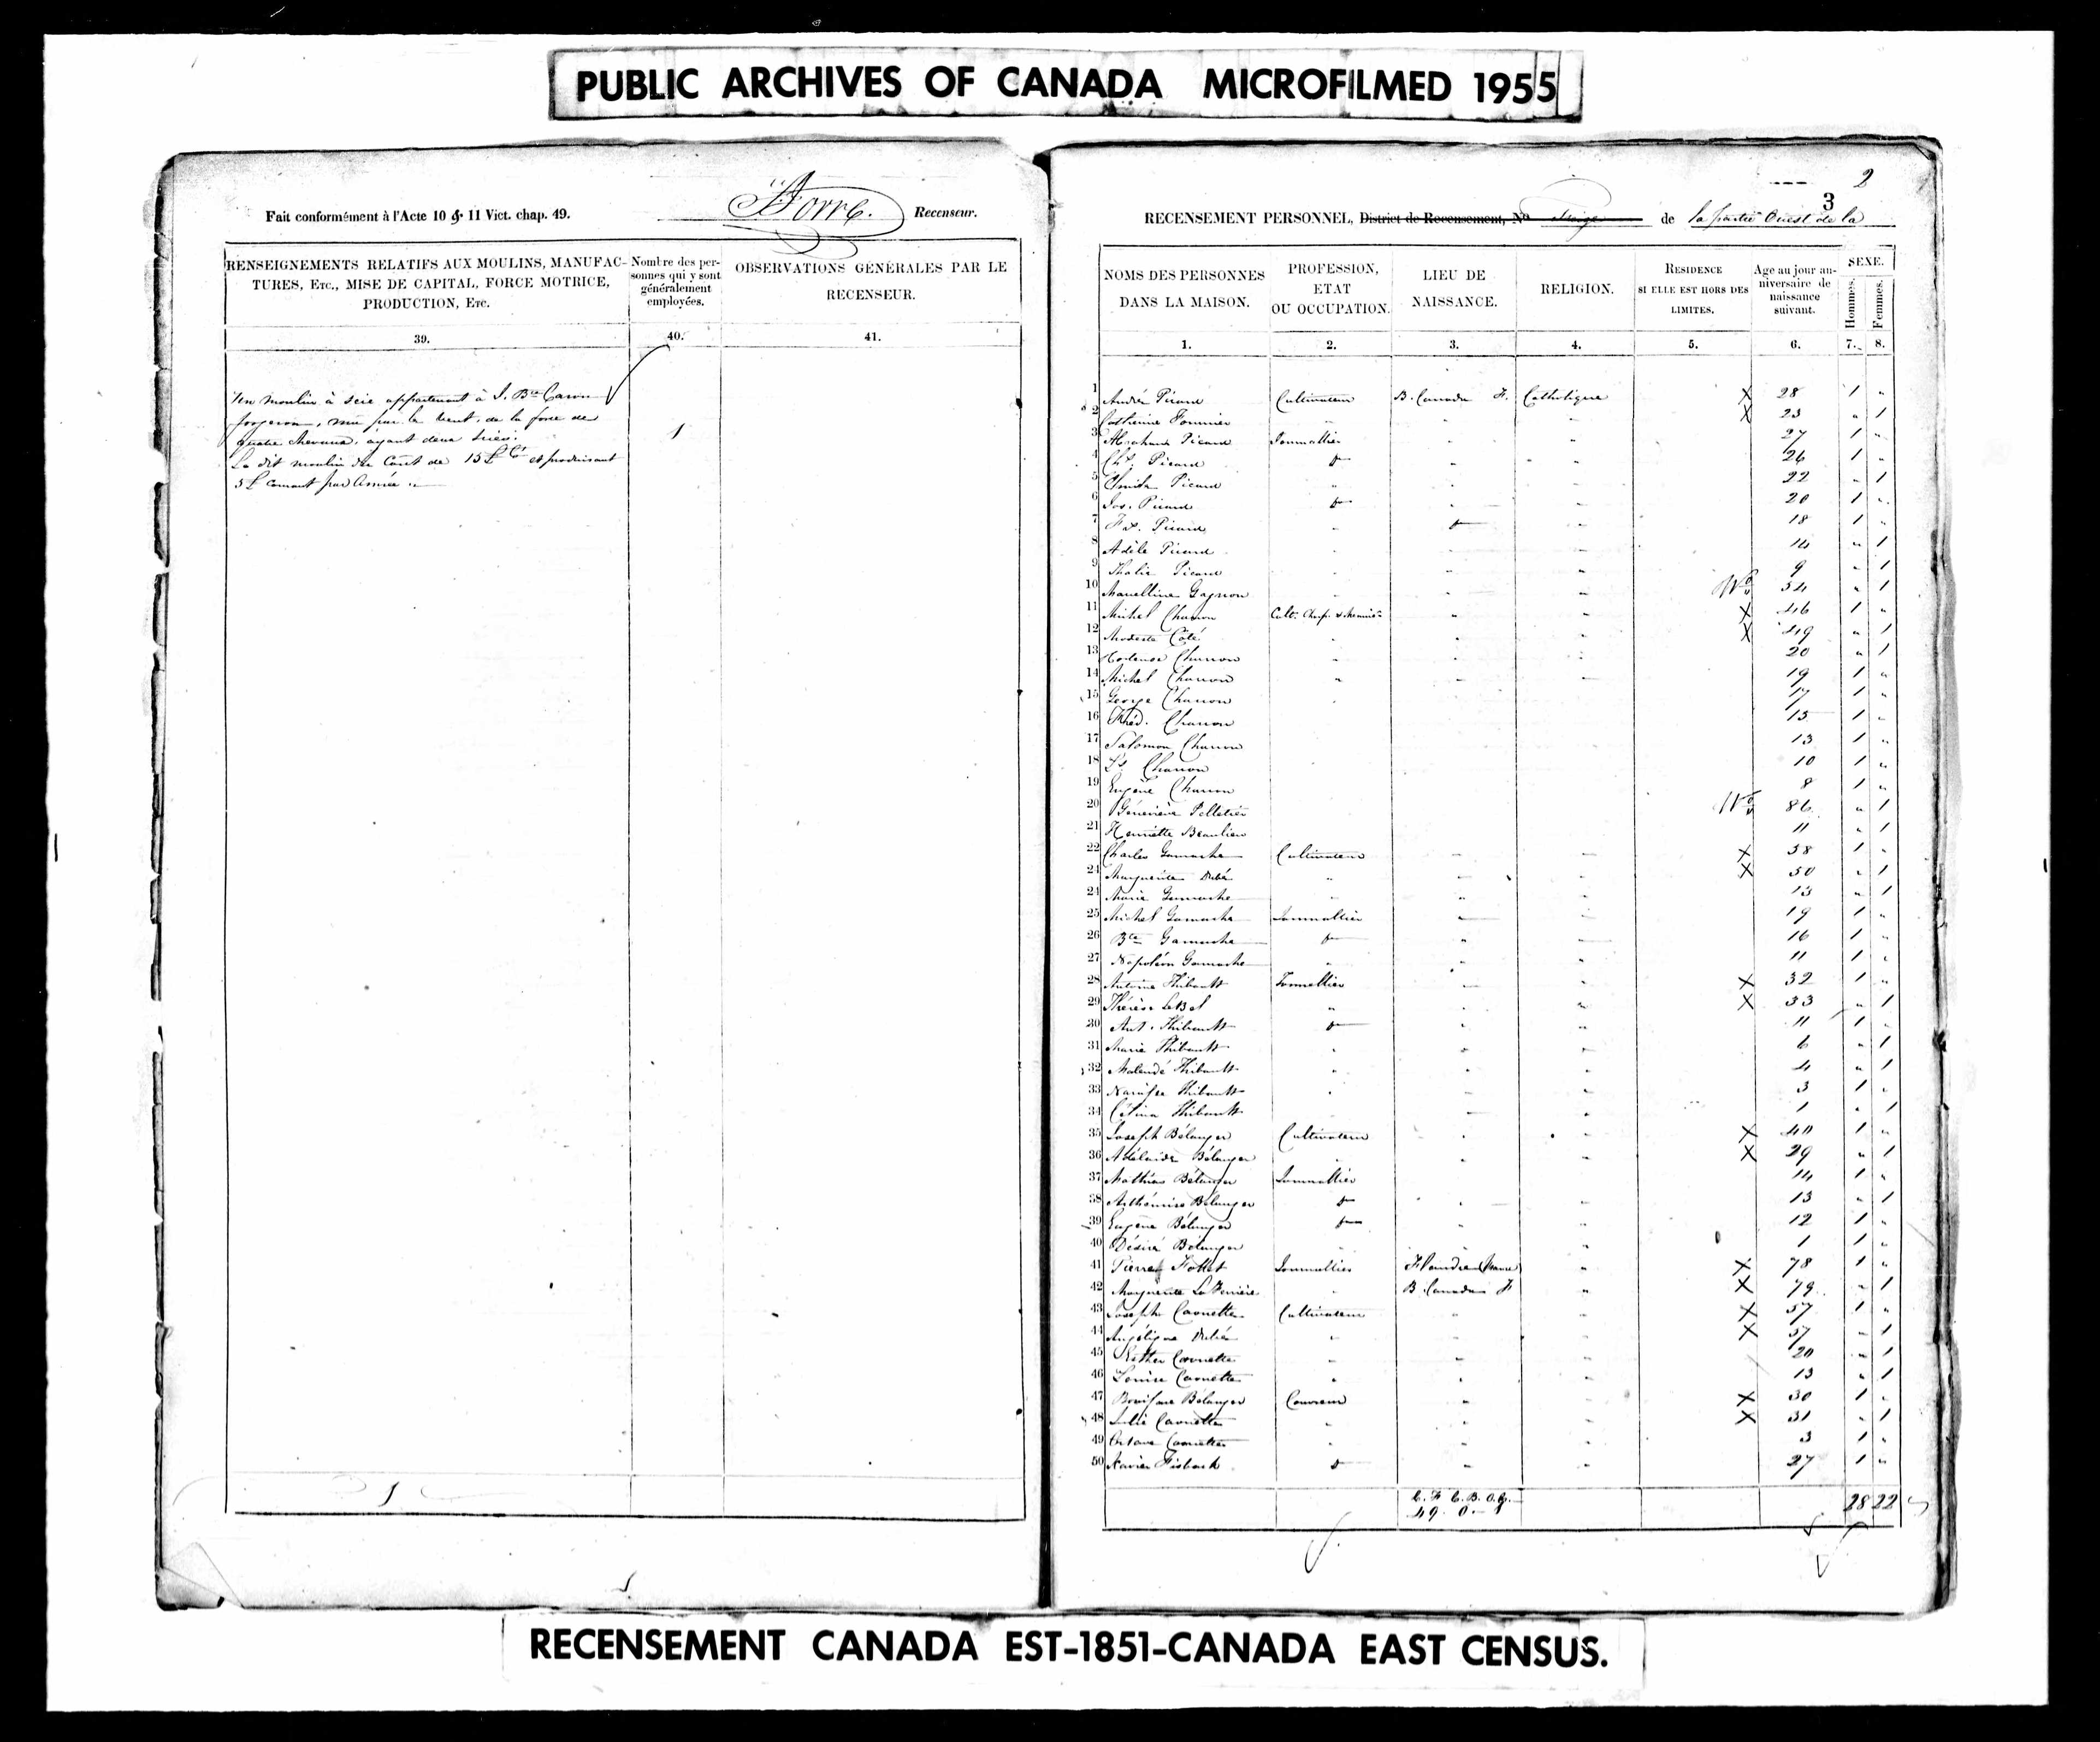 PUBLIC ARCHIVES OF CANADA MICROFILMED 1955
Fait conformément à l'Acte 10 & 11 Vict. chap. 49.
Recenseur.
RENSEIGNEMENTS RELATIFS AUX MOULINS, MANUFAC-
TURES, Etc., MISE DE CAPITAL, FORCE MOTRICE,
PRODUCTION, Etc.
Nombre des per-
sonnes qui y sont
généralement
employées.
OBSERVATIONS GÉNÉRALES PAR LE
RECENSEUR.
39. 40. 41.
Un moulin à scie appartenant à J. Bte Caron
forgeron, mu par le vent, de la force de
quatre chevaux, ayant deux scies. 1
Le dit moulin du Cout de 15 £ Ct et produisant
5 £ courant par Année "
1
2
3
RECENSEMENT PERSONNEL, District de Recensement, No de la partie Ouest de la
NOMS DES PERSONNES
DANS LA MAISON.
PROFESSION,
ETAT
OU OCCUPATION.
LIEU DE
NAISSANCE.
RELIGION.
RESIDENCE
SI ELLE EST HORS DES
LIMITES.
Age au jour an-
niversaire de
naissance
suivant.
SEXE.
Hommes.
Femmes.
1. 2. 3. 4. 5. 6. 7. 8.
1 André Picard Cultivateur B. Canada F. Catholique X 28 1 "
2 Catherine Fournier " " " X 23 " 1
3 Abraham Picard Journallier " " 27 1 "
4 Chs. Picard " " 26 1 "
5 Picard " " " 22 " 1
6 Jos. Picard " " 20 1 "
7 Fs. Picard " " 18 1 "
8 Adèle Picard " " " 14 " 1
9 Thalie Picard " " " 9 " 1
10 Marcelline Gagnon " " " 54 " 1
11 Michel Charron Cult. " " X 46 1 "
12 Modeste Côté " " " X 49 " 1
13 Hortense Charron " " " 20 " 1
14 Michel Charron " " " 19 1 "
15 George Charron " 17 1 "
16 Théd. Charron 15 1 "
17 Salomon Charron 13 1 "
18 Ls Charron 10 1 "
19 Eugène Charron 8 1 "
20 Généviève Pelletier 86 " 1
21 Henriette Beaulieu 11 " 1
22 Charles Gamache Cultivateur " " X 58 1 "
Marguerite Dubé " " " X 50 " 1
24 Marie Gamache " " " 13 " 1
25 Michel Gamache Journallier " " 19 1 "
26 Bte Gamache " " 16 1 "
27 Napoléon Gamache " " " 11 1 "
28 Antoine Thibault Journallier " " X 32 1 "
29 Thérèse LeBel " " " X 33 " 1
30 Ant. Thibault " " 11 1 "
31 Marie Thibault " " " 6 " 1
32 Thibault " " " 4 " 1
33 Narcisse Thibault " " " 3 1 "
34 Célina Thibault " " " 1 " 1
35 Joseph Bélanger Cultivateur " " X 40 1 "
36 Adélaide Bélanger " " " X 29 " 1
37 Mathias Bélanger Journallier 14 1 "
38 Arthémise Bélanger " " 13 " 1
39 Eugène Bélanger " " 12 1 "
40 Désiré Bélanger " " " 1 1 "
41 Pierre Journallier " X 78 1 "
42 Marguerite " B. Canada F " X 79 " 1
43 Joseph Caouette Cultivateur " " X 57 1 "
44 Angélique Dubé " " " X 57 " 1
45 Esther Caouette " " " 20 " 1
46 Louise Caouette " " " 13 " 1
47 Boniface Bélanger Couvreur " " X 30 1 "
48 Julie Caouette " " " X 31 " 1
49 Octave Caouette " " " 3 1 "
50 Xavier " " 27 1 "
C. F C. B. O. C.
49. 0. 1
28 22
RECENSEMENT CANADA EST-1851-CANADA EAST CENSUS.